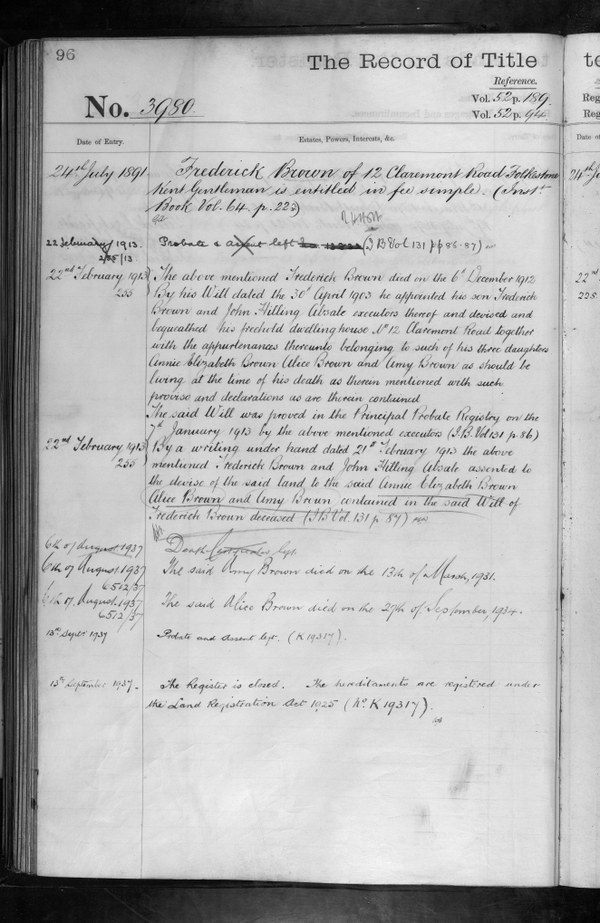 96
The Record of Title
Reference.
No. 3980
Vol. 52 p. 189.
Vol. 52 p. 94
Date of Entry.
Estates, Powers, Interests, &c.
24th July 1891
Frederick Brown of 12 Claremont Road Folkestone
Kent Gentleman is entitled in fee simple. (Instt
Book Vol. 64. p. 223)
22 February 1913.
Probate & Assent left (I B Vol 131 pp 86-87)
255/13
22nd February 1913
The above mentioned Frederick Brown died on the 6th December 1912
255
By his Will dated the 30th April 1903 he appointed his son Frederick
Brown and John Hilling Absale executors thereof and devised and
bequeathed his freehold dwelling house No 12 Claremont Road together
with the appurtenances thereunto belonging to such of his three daughters
Annie Elizabeth Brown Alice Brown and Amy Brown as should be
living at the time of his death as therein mentioned with such
proviso and declarations as are therein contained
The said Will was proved in the Principal Probate Registry on the
7th January 1913 by the above mentioned executors (I.B. Vol 131 p. 86)
22nd February 1913
By a writing under hand dated 21st February 1913 the above
255
mentioned Frederick Brown and John Hilling Absale assented to
the devise of the said land to the said Annie Elizabeth Brown
Alice Brown and Amy Brown contained in the said Will of
Frederick Brown deceased (I B Vol. 131 p 87)
6th of August 1937
Death Certificates left.
6th of August 1937
The said Amy Brown died on the 13th of March, 1931.
6512/37
6th of August. 1937
The said Alice Brown died on the 27th of September, 1934.
6512/37
13th Septr 1937
Probate and Assent left. (K 19317).
13th September 1937.
The Register is closed. The hereditaments are registered under
the Land Registration Act 1925 (No. K 19317).
te
Reg
Reg
Date of
24th J
22nd
255